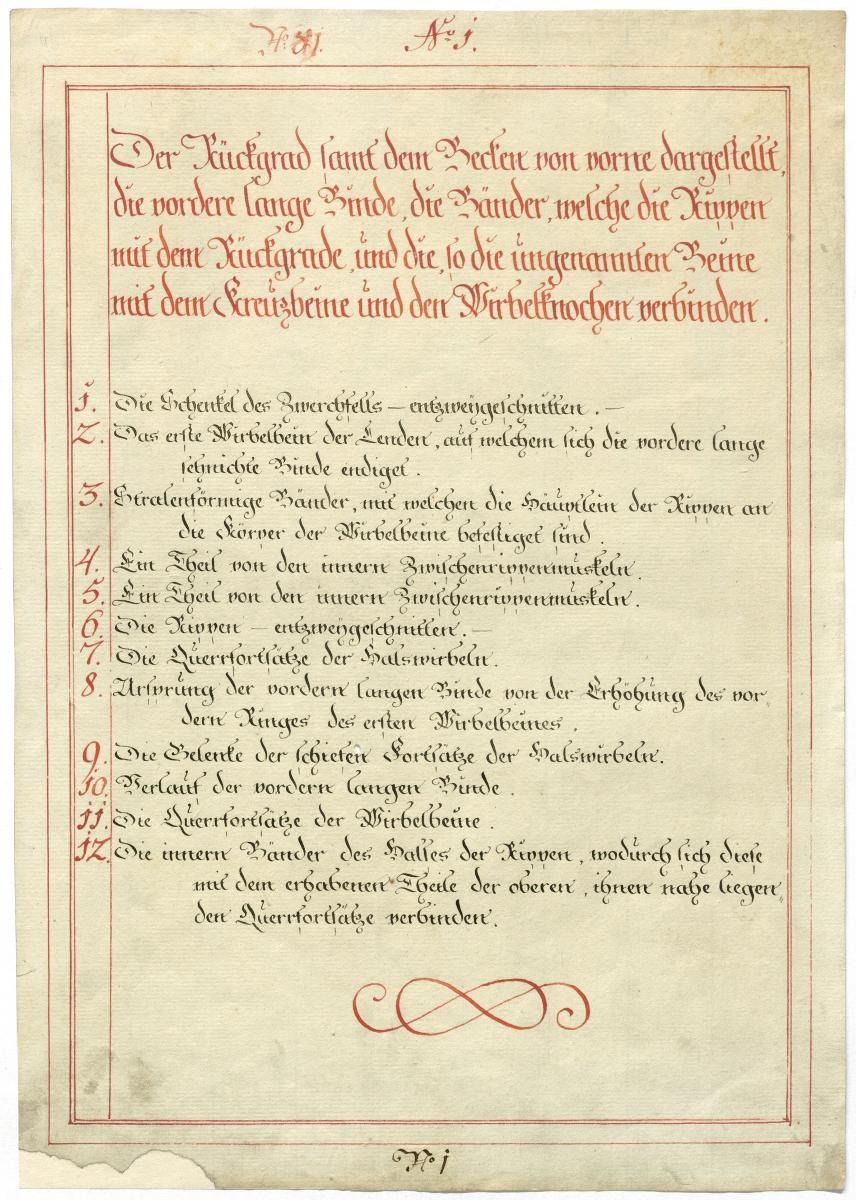 N° 1.
Der Rückgrad samt dem Becken von vorne dargestellt,
die vordere lange Binde, die Bänder, welche die Rippen
mit dem Rückgrade, und die, so die ungenannten Beine
mit dem Kreuzbeine und den Wirbelknochen verbinden.
1. Die Schenkel des Zwerchfells – entzweygeschnitten. –
2. Das erste Wirbelbein der Lenden, auf welchem sich die vordere lange
sehnichte Binde endiget.
3. Stralenförmige Bänder, mit welchen die Häuptlein der Rippen an
die Körper der Wirbelbeine befestiget sind.
4. Ein Theil von den innern Zwischenrippenmuskeln.
5. Ein Theil von den innern Zwischenrippenmuskeln.
6. Die Rippen – entzweygeschnitten. –
7. Die Querrfortsätze der Halswirbeln.
8. Ursprung der vordern langen Binde von der Erhöhung des vor-
dern Ringes des ersten Wirbelbeines.
9. Die Gelenke der schiefen Fortsätze der Halswirbeln.
10. Verlauf der vordern langen Binde.
11. Die Querrfortsätze der Wirbelbeine.
12. Die innern Bänder des Halses der Rippen, wodurch sich diese
mit dem erhabenen Theile der oberen, ihnen nahe liegen-
den Querrfortsätze verbinden.
N° 1